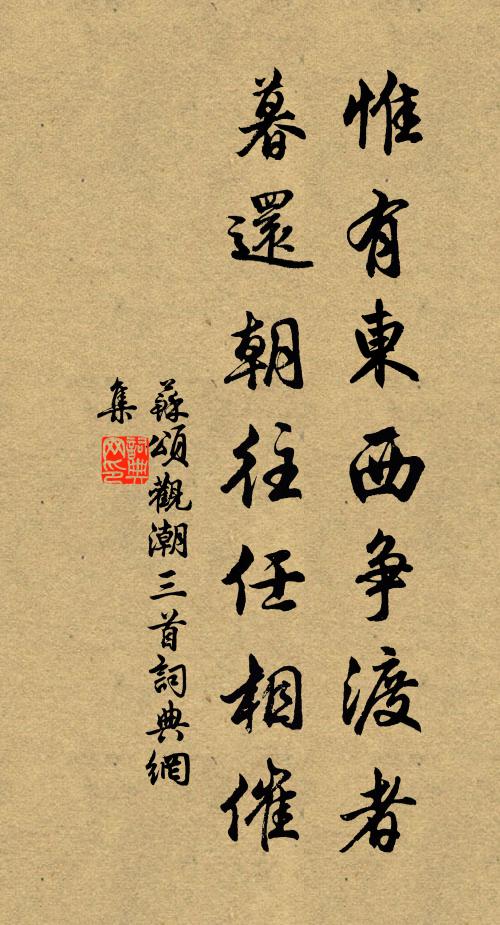 惟有東西争渡者
暮還朝往任相催
蘇頌觀潮三首詞典網
集
詞典网印